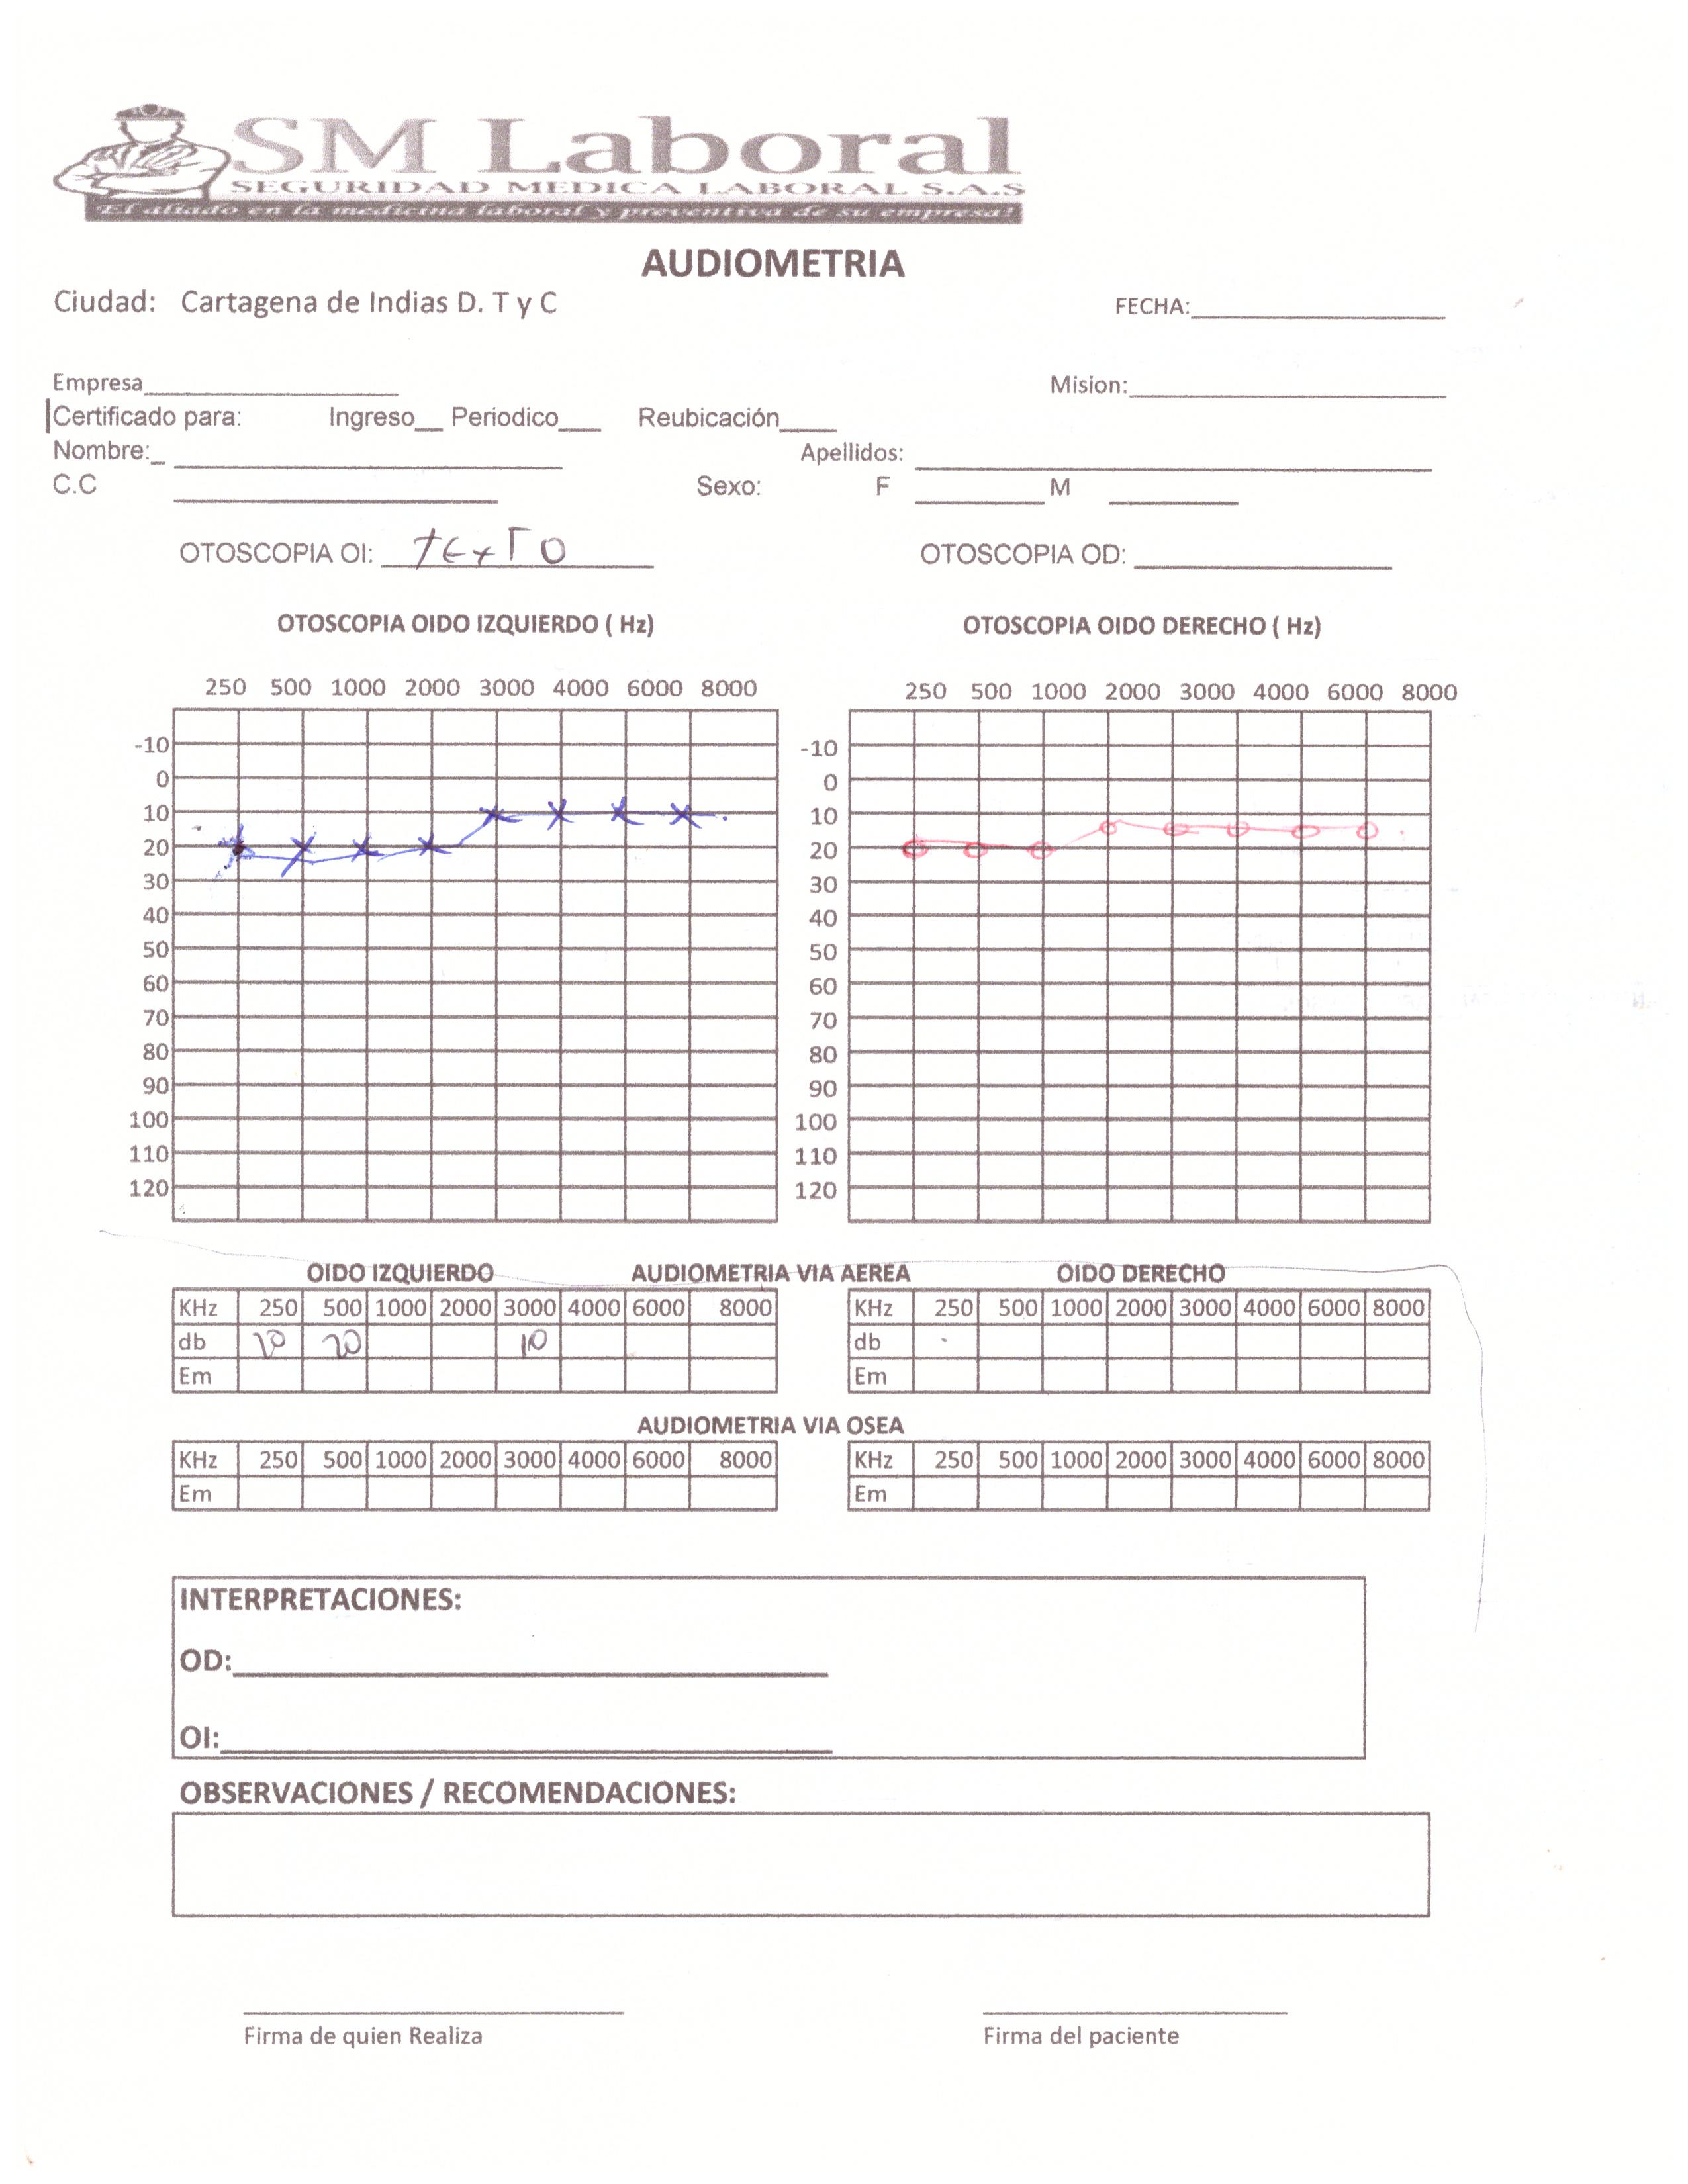 SM Laboral
SEGURIDAD MEDICA LABORAL S.A.S
El aliado en la medicina laboral y preventiva de su empresa!
AUDIOMETRIA
Ciudad: Cartagena de Indias D. T y C FECHA:
Empresa Mision:
Certificado para: Ingreso Periodico Reubicación
Nombre: Apellidos:
C.C Sexo: F M
OTOSCOPIA OI: texto OTOSCOPIA OD:
OTOSCOPIA OIDO IZQUIERDO ( Hz) OTOSCOPIA OIDO DERECHO ( Hz)
250 500 1000 2000 3000 4000 6000 8000 250 500 1000 2000 3000 4000 6000 8000
-10 -10
0 0
10 10
20 20
30 30
40 40
50 50
60 60
70 70
80 80
90 90
100 100
110 110
120 120
OIDO IZQUIERDO AUDIOMETRIA VIA AEREA OIDO DERECHO
KHz 250 500 1000 2000 3000 4000 6000 8000 KHz 250 500 1000 2000 3000 4000 6000 8000
db 20 20 10 db
Em Em
AUDIOMETRIA VIA OSEA
KHz 250 500 1000 2000 3000 4000 6000 8000 KHz 250 500 1000 2000 3000 4000 6000 8000
Em Em
INTERPRETACIONES:
OD:
OI:
OBSERVACIONES / RECOMENDACIONES:
Firma de quien Realiza Firma del paciente